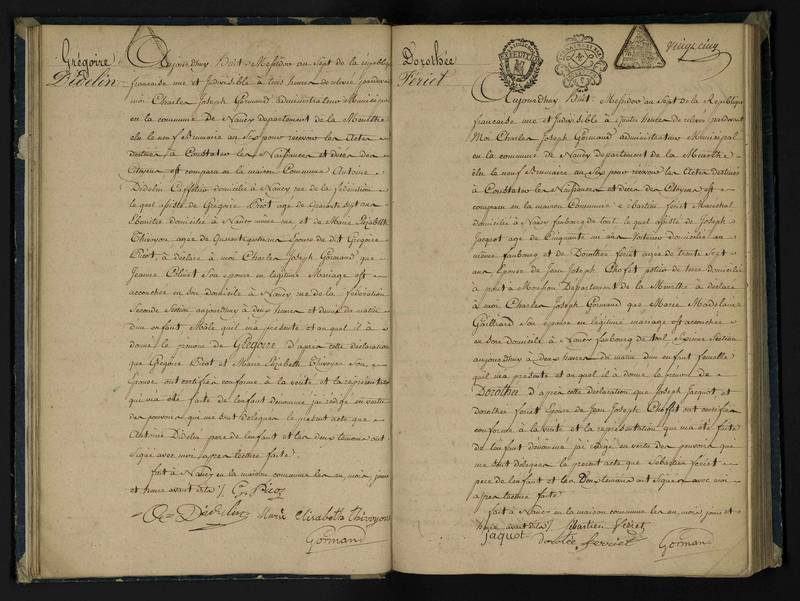 Grégoire
Didelin
Aujourdhuy Huit Messidor an Sept de la republique
francaise une et Indivisible à trois heures de relevée pardevant
moi Charles Joseph Gormand administrateur Municipal
en la commune de Nancy departement de la Meurthe
élu le neuf Brumaire an Six pour recevoir les Actes
destinés à Constater les Naissances et décès des
Citoyens est comparu en la maison Commune Antoine
Didelin domicilié à Nancy rue de la fédération
le quel assisté de Grégoire Picot agé de Quarante Sept ans
Ebeniste domicilié à Nancy même rue et de Marie Elizabeth
Thiroyon agée de Quarante ans Epouse du dit Grégoire
Picot à déclaré à moi Charles Joseph Gormand que
Jeanne Son épouse en legitime Mariage est
accouchée en Son domicile à Nancy rue de la féderation
Seconde Section aujourdhuy à deux heures et demie du matin
d'un enfant Mâle quil m'a présenté et au quel il à
donné le prenom de Grégoire d'apres cette déclaration
que Grégoire Picot et Marie Elizabeth Thiroyon Son
Epouse ont certifiés conforme à la verité et la représentation
qui m'a été faite de l'enfant dénommé j'ai rédigé en vertu
des pouvoirs qui me sont délégués le présent acte que
Antoine Didelin pere de l'enfant et les deux temoins ont
Signé avec moi apres lecture faite
fait à Nancy en la maison commune les an, mois, jour
et heure avant dits G. Picot
A Didelin Marie Elisabeth Thiroyon
Gormand
Dorothée
Feriet
vingt cinq
Aujourdhuy Huit Messidor an Sept de la Republique
francaise une et Indivisible à quatre heures de relevée pardevant
Moi Charles Joseph Gormand administrateur Municipal
en la commune de Nancy Departement de la Meurthe
élu le neuf Brumaire an Six pour recevoir les Actes destinés
à Constater les Naissances et décès des Citoyens est
comparu en la maison Commune Sébastien feriet Marechal
domicilié à Nancy faubourg de toul le quel assisté de Joseph
Jacquot agé de Cinquante un ans domicilié au
même faubourg et de Dorothée feriet agée de trente Sept
ans épouse de Jean Joseph Chofet potier de terre domicilié
à pont à Mousson Departement de la Meurthe à déclaré
à moi Charles Joseph Gormand que Marie Madelaine
Gailliard Son épouse en légitime mariage est accouchée
en Son domicile à Nancy faubourg de toul Section
aujourdhuy à deux heures du matin d'un enfant femelle
quil m'a présenté et au quel il à donné le prenom de
Dorothée d'apres cette déclaration que Joseph Jacquot et
Dorothée feriet épouse de Jean Joseph Choffet ont certifiés
conforme à la verité et la représentation qui m'a été faite
de l'enfant dénommé j'ai rédigé en vertu des pouvoirs qui
me sont délégués le présent acte que Sébastien feriet
pere de l'enfant et les Deux temoins ont Signés avec moi
apres lecture faite
fait à Nancy en la maison commune les an, mois jour et
heure avant dits Sébastien Fériet
jaquot dorotée ferriet Gormand